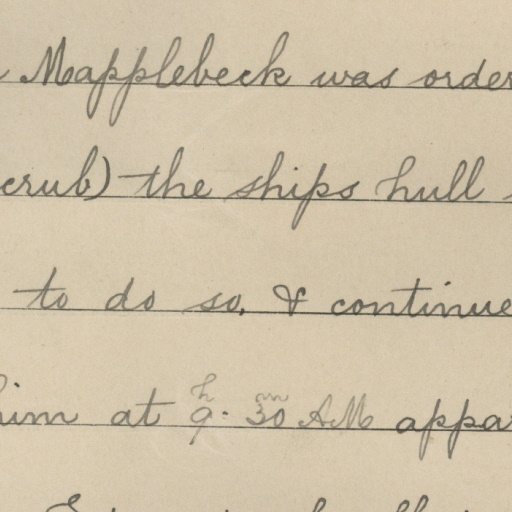 Mapplebeck was order
crub) the ships hull
to do so, & continue
him at 9h. 30m AM appar